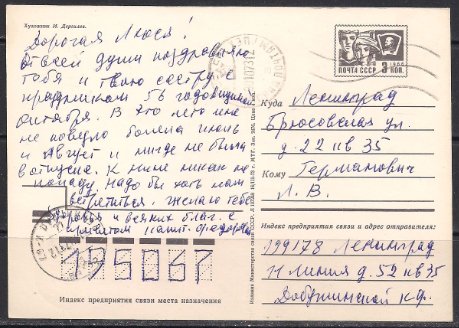 Художник И. Дергилев
Дорогая Люся!
От всей души поздравляю
тебя и твою сестру с
праздником 56 годовщины
октября. В это лето мне
не повезло болела июнь
и август и нигде не была
в отпуске. К тине никак не
попаду. Надо бы хоть нам
встретиться. Желаю тебе
здоровья и всяких благ. с
приветом
ПОЧТА СССР 3 КОП.
1966
Куда Ленинград
Брюсовская ул.
д-22 кв 35
Кому Германович
Л. В.
Индекс предприятия связи и адрес отправителя:
199178 Ленинград
11 линия д. 52 кв 35
Добужинской К.Ф.
195067
Индекс предприятия связи места назначения